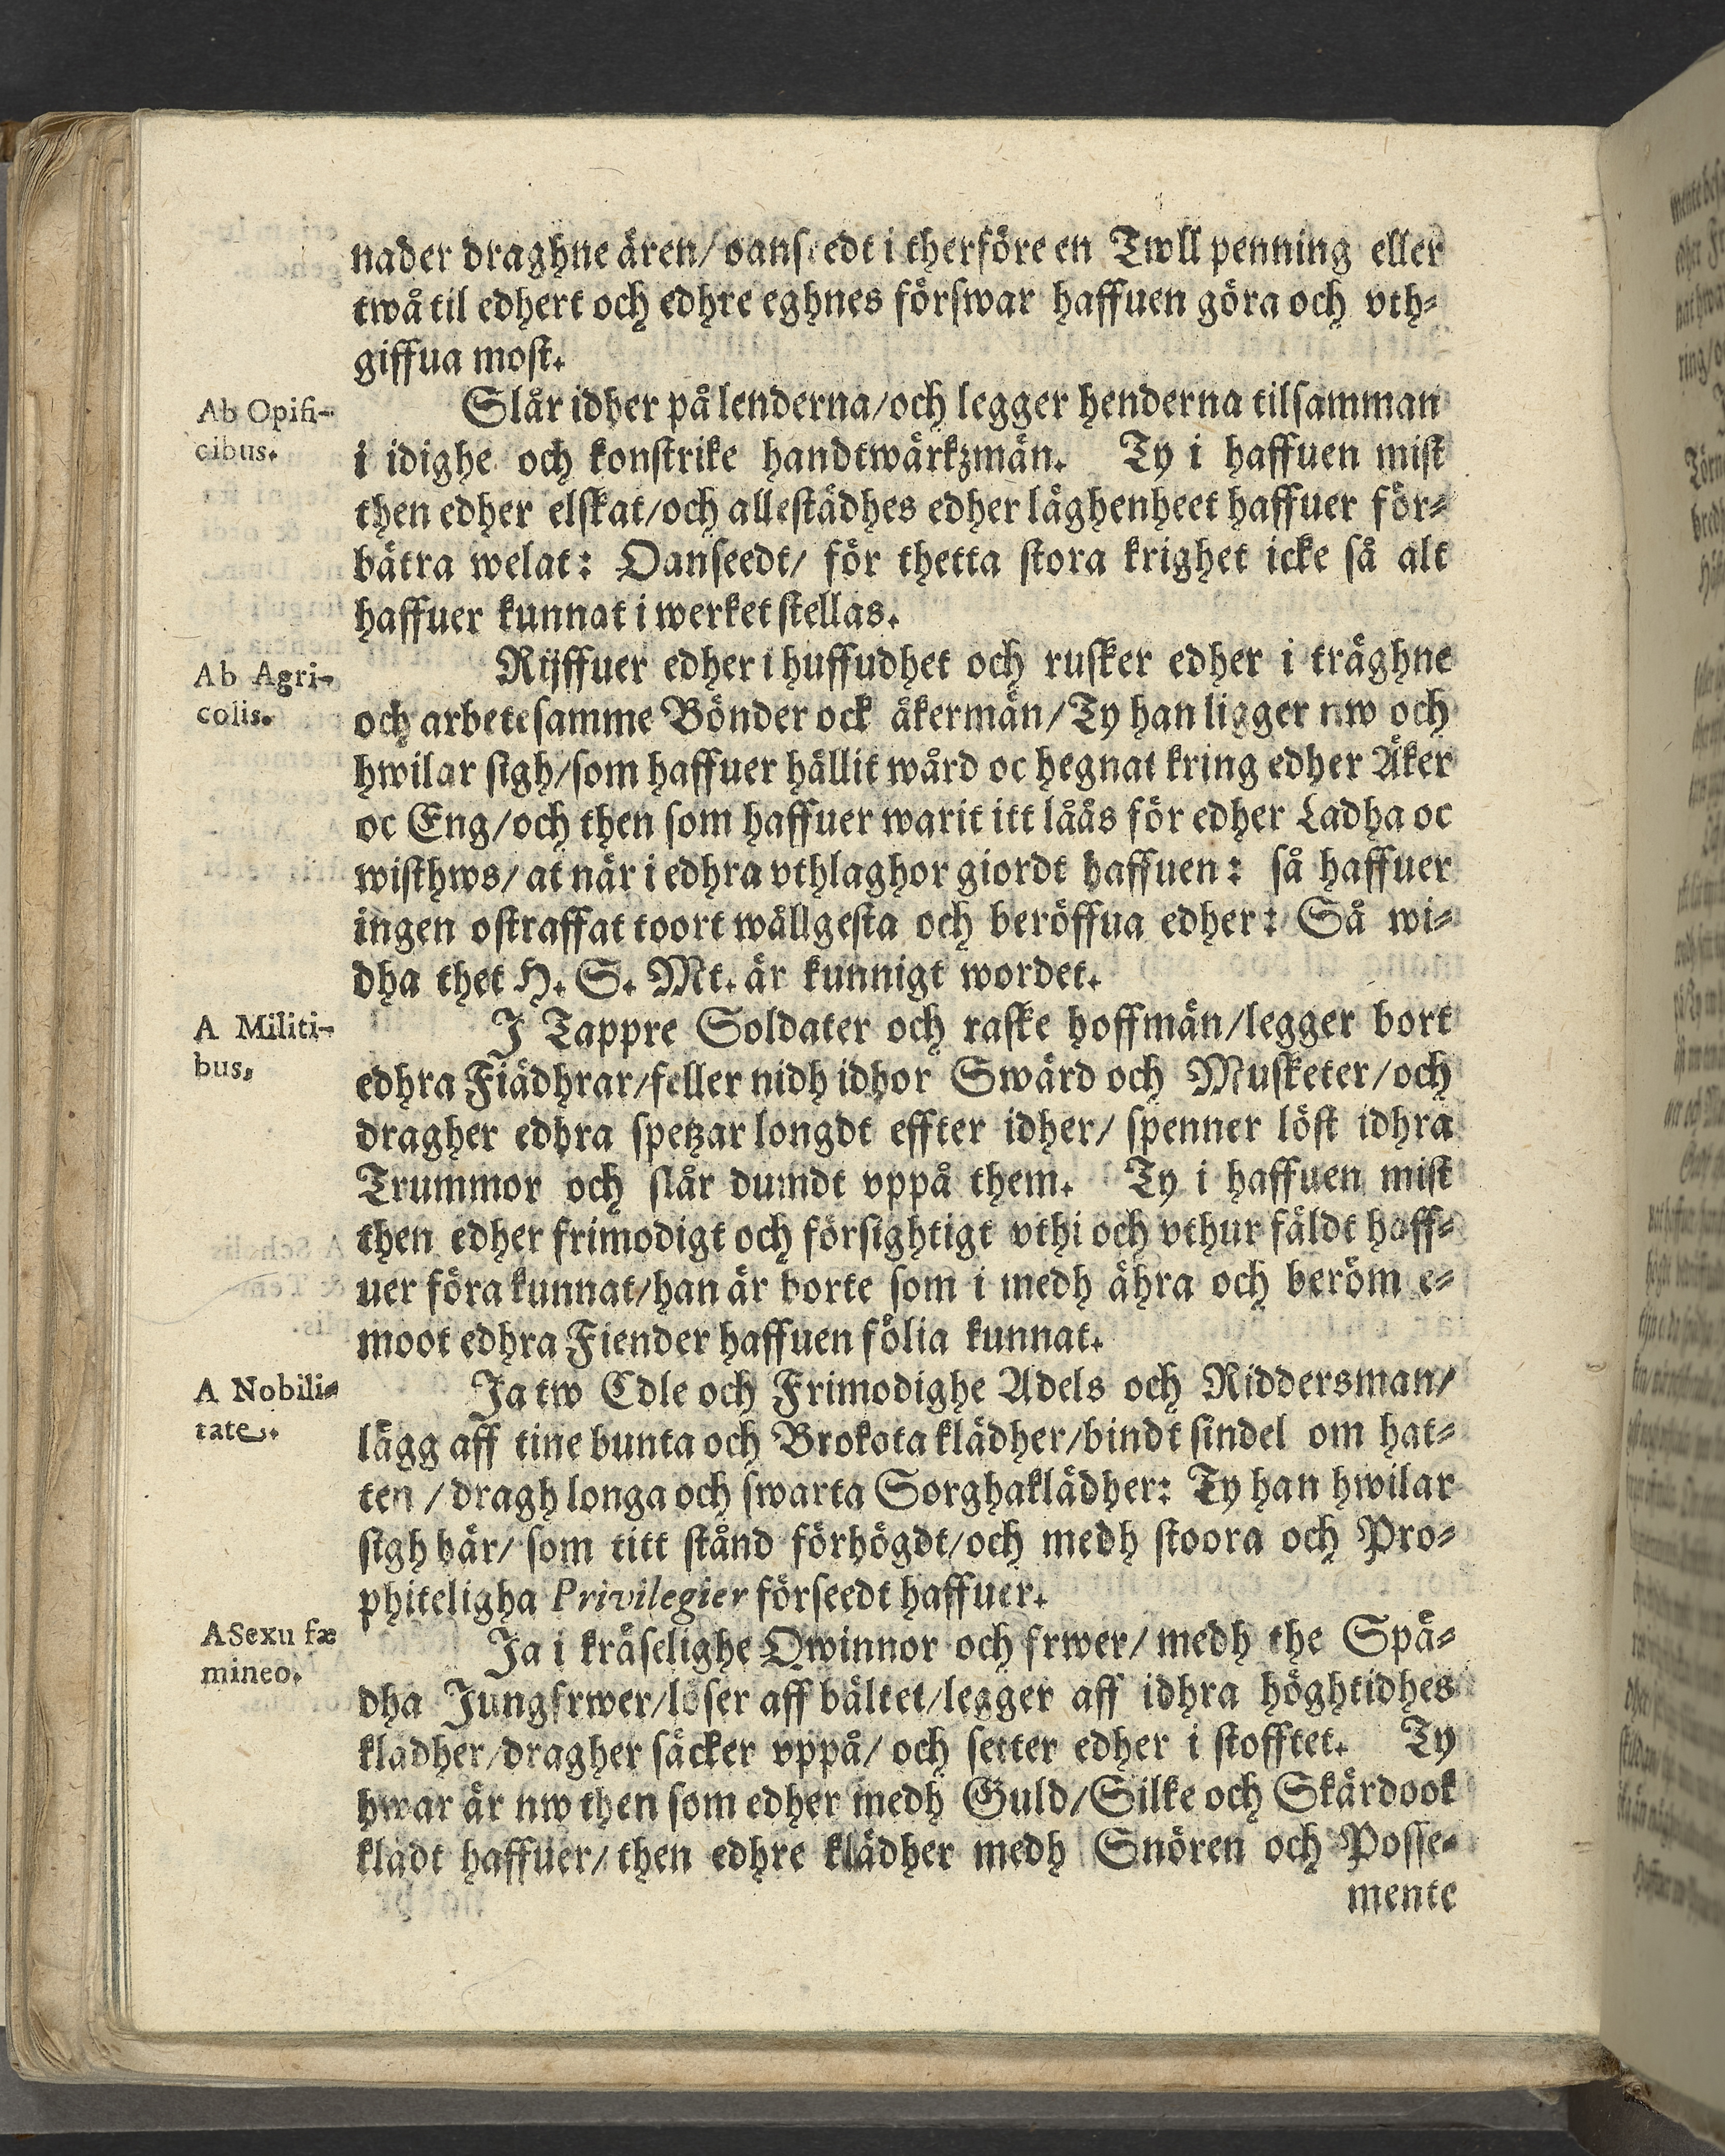 nader draghne ären/ oanseedt i therföre en Twll penning eller
twå til edhert och edhre eghnes förswar haffuen göra och vth-
giffua most.
Ab Opifi-
cibus.
Slår idher på lenderna/och legger henderna tilsamman
i idighe och konstrike handtwärkzmän. Ty i haffuen mist
then edher elskat/och allestädhes edher läghenheet haffuer för-
bätra welat: Oanseedt/ för thetta stora krighet icke så alt
haffuer kunnat i werket stellas.
Ab Agri-
colis.
Rijffuer edher i huffudhet och rusker edher i träghne
och arbetesamme Bönder ock åkermän/Ty han ligger nw och
hwilar sigh/som haffuer hållit wård oc hegnat kring edher Åker
oc Eng/och then som haffuer warit itt låås för edher Ladha oc
wisthws/ at när i edhra vthlaghor giordt haffuen: så haffuer
ingen ostraffat toort wållgesta och beröffua edher: Så wi-
dha thet H. S. Mt. är kunnigt wordet.
A Militi-
bus,
J Tappre Soldater och raske hoffmän/legger bort
edhra Fiädhrar/feller nidh idhor Swärd och Musketer/och
dragher edhra spetzar longdt effter idher/ spenner löst idhra
Trummor och slår dumdt vppå them. Ty i haffuen mist
then edher frimodigt och försightigt vthi och vthur fäldt haff-
uer föra kunnat/han är borte som i medh ähra och beröm e-
moot edhra Fiender haffuen fölia kunnat.
A Nobili-
tate.
Ja tw Edle och Frimodighe Adels och Riddersman/
lägg aff tine bunta och Brokota klädher/bindt sindel om hat-
ten / dragh longa och swarta Sorghaklädher: Ty han hwilar
sigh här/ som titt stånd förhögdt/och medh stoora och Pro-
phiteligha Privilegier förseedt haffuer.
A Sexu fæ
mineo.
Ja i kräselighe Qwinnor och frwer/ medh the Spä-
dha Jungfrwer/löser aff bältet/legger aff idhra höghtidhes
klädher/dragher säcker vppå/ och setter edher i stofftet. Ty
hwar är nw then som edher medh Guld/Silke och Skärdook
klädt haffuer/ then edhre klädher medh Snören och Posse-
mente